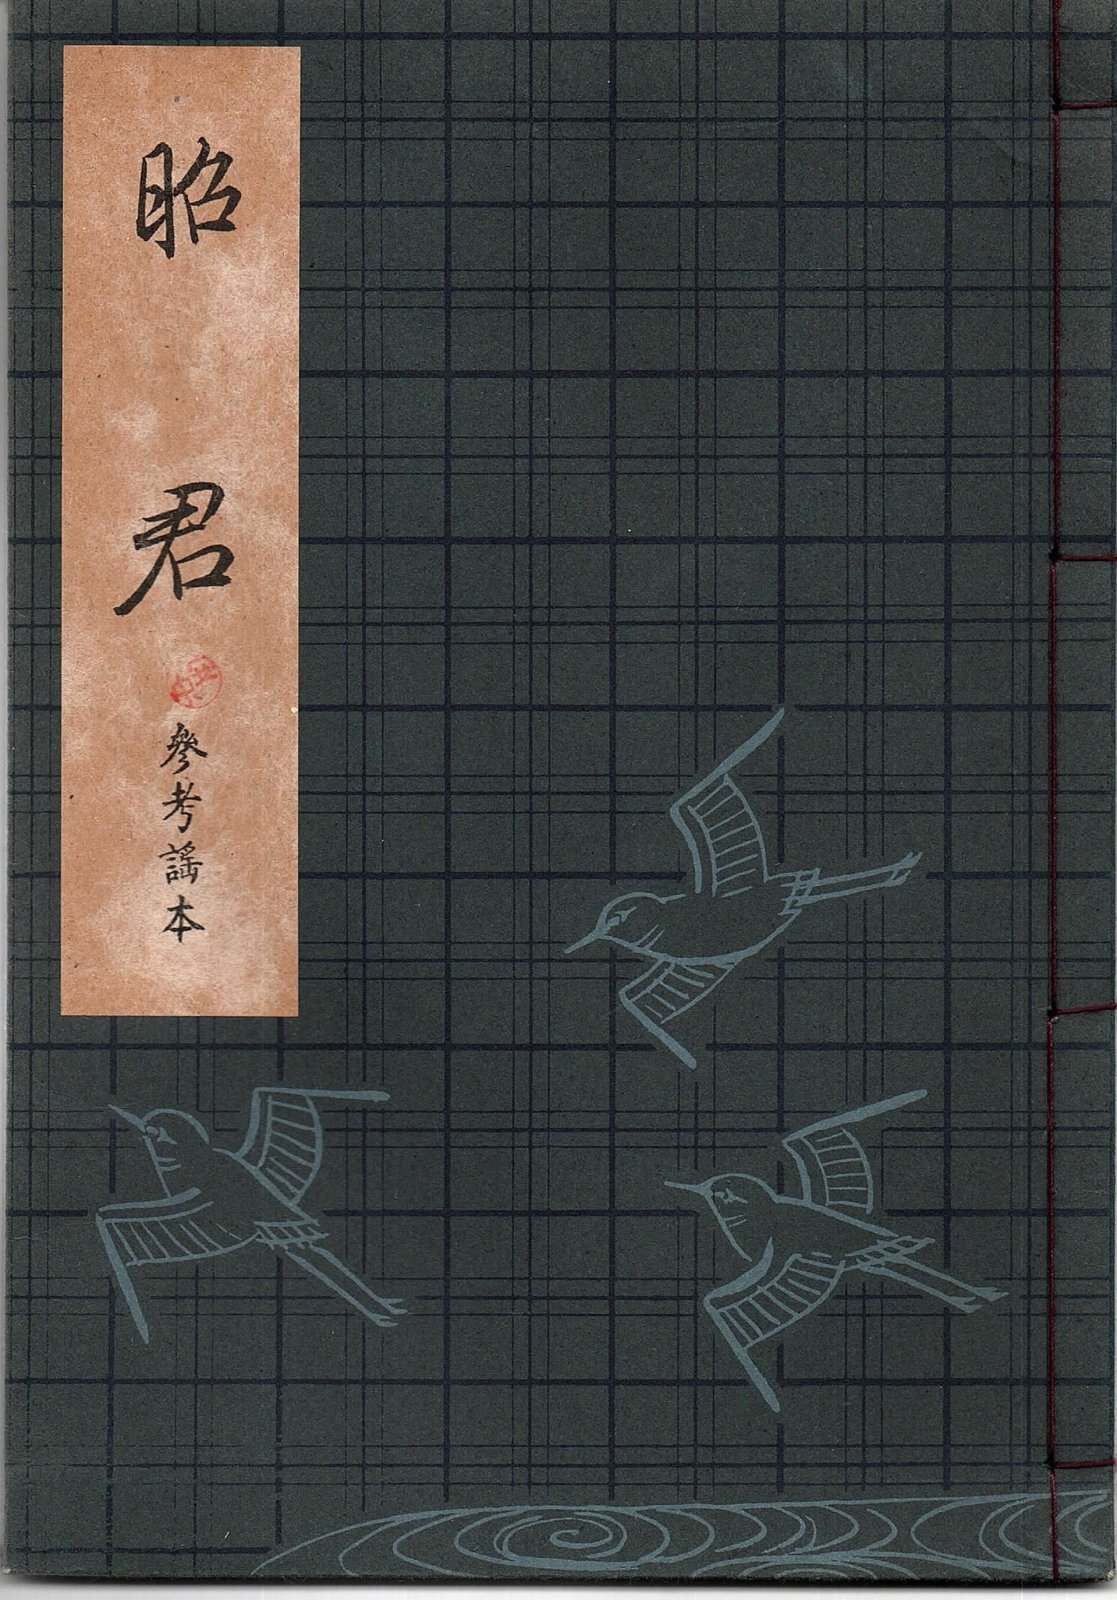 昭君
參考謠本